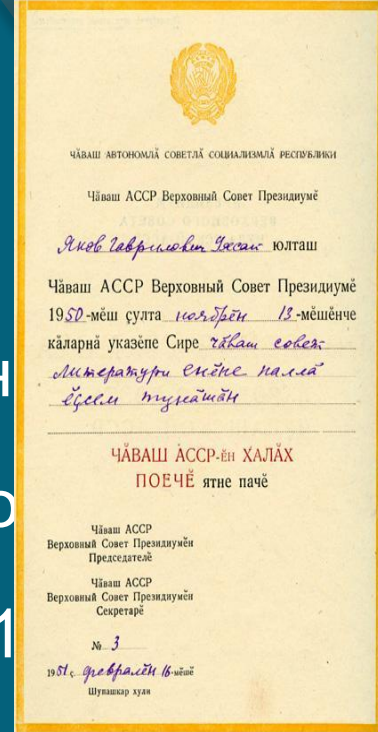 ЧӐВАШ АВТОНОМЛӐ СОВЕТЛӐ СОЦИАЛИЗМЛӐ РЕСПУБЛИКИ
Чӑваш АССР Верховный Совет Президиумӗ
Яков Гаврилович Ухсай юлташ
Чӑваш АССР Верховный Совет Президиумӗ
1950-мӗш ҫулта ноябрӗн 13-мӗшӗнче
кӑларнӑ указӗпе Сире чӑваш совет
литератури енӗпе паллӑ
ӗҫсем тунӑшӑн
ЧӐВАШ АССР-ӗн ХАЛӐХ
ПОЕЧӖ ятне пачӗ
Чӑваш АССР
Верховный Совет Президиумӗн
Председателӗ
Чӑваш АССР
Верховный Совет Президиумӗн
Секретарӗ
№ 3
1951 ҫ. февралӗн 16-мӗшӗ
Шупашкар хули
н
1